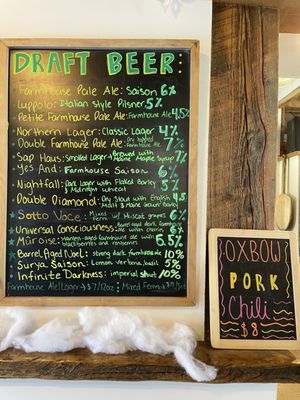 DRAFT BEER:
Farmhouse Pale Ale: Saison 6%
Luppolo: Italian style Pilsner 5%
Petite Farmhouse Pale Ale: Farmhouse Ale 4.5%
Northern Lager: Classic Lager 4%
Double Farmhouse Pale Ale: Dry hopped Farmhouse Ale 7%
Sap Haus: Smoked Lager Brewed with Maine Maple Syrup 7%
Yes And: Farmhouse Saison 6%
Nightfall: Dark lager with Flaked Barley & Midnight wheat 5%
Double Diamond: Dry Stout with English Malt & Maine Grown Barley 4.5
Sotto Voce: Mixed Ferm w/ Muscat grapes 6%
Universal Consciousness: Barrel aged dark farmhouse ale with cherries 6%
blackberries and 5.5%
Barrel Aged Noel: strong dark farmhouse ale 10%
Surya Saison: Lemon verbena, basil 5%
Infinite Darkness: imperial stout 10%
Farmhouse Ale/Lager → $7/12oz Mixed Ferm
OXBOW
PORK
Chili
$8